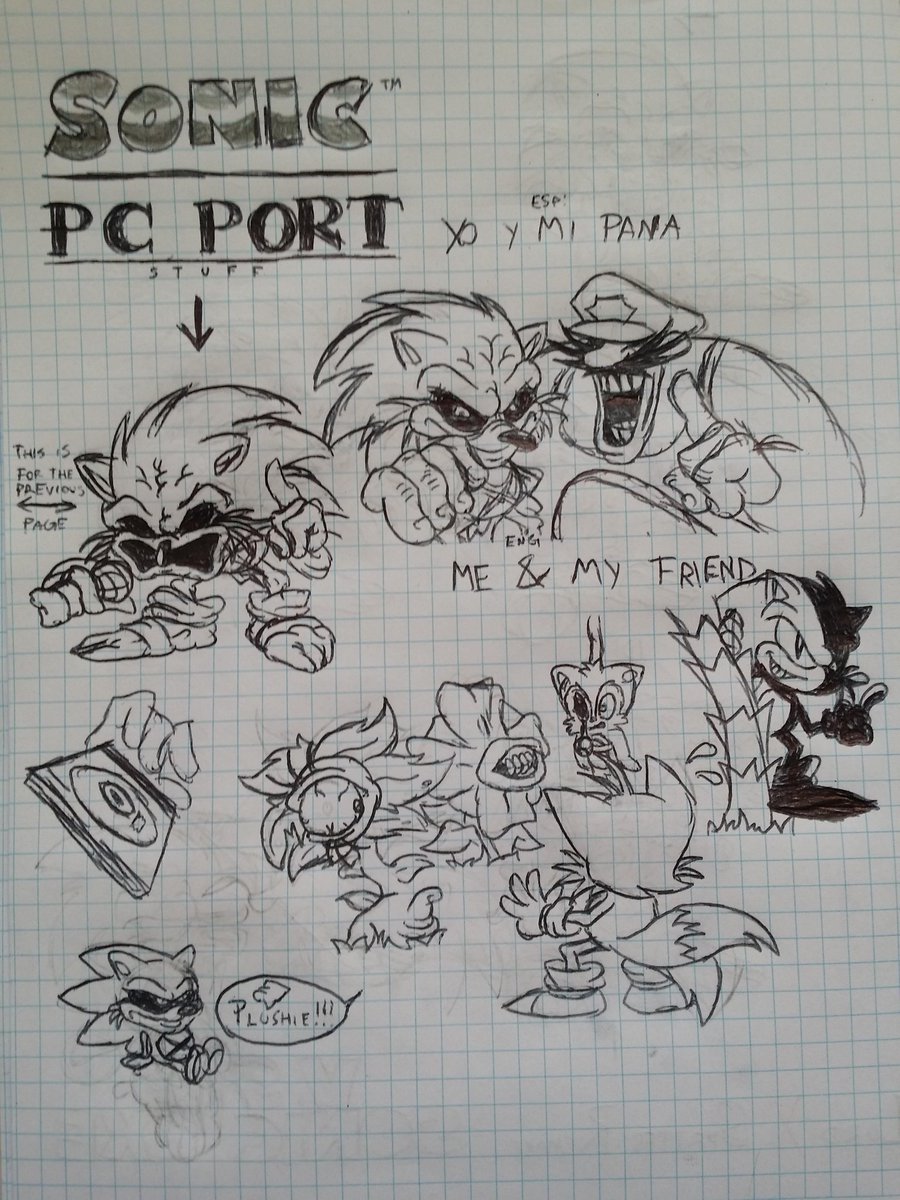 SONIC™
PC PORT
STUFF
ESP:
YO Y MI PANA
THIS IS
FOR THE
PREVIOUS
PAGE
ENG:
ME & MY FRIEND
PLUSHIE!!!